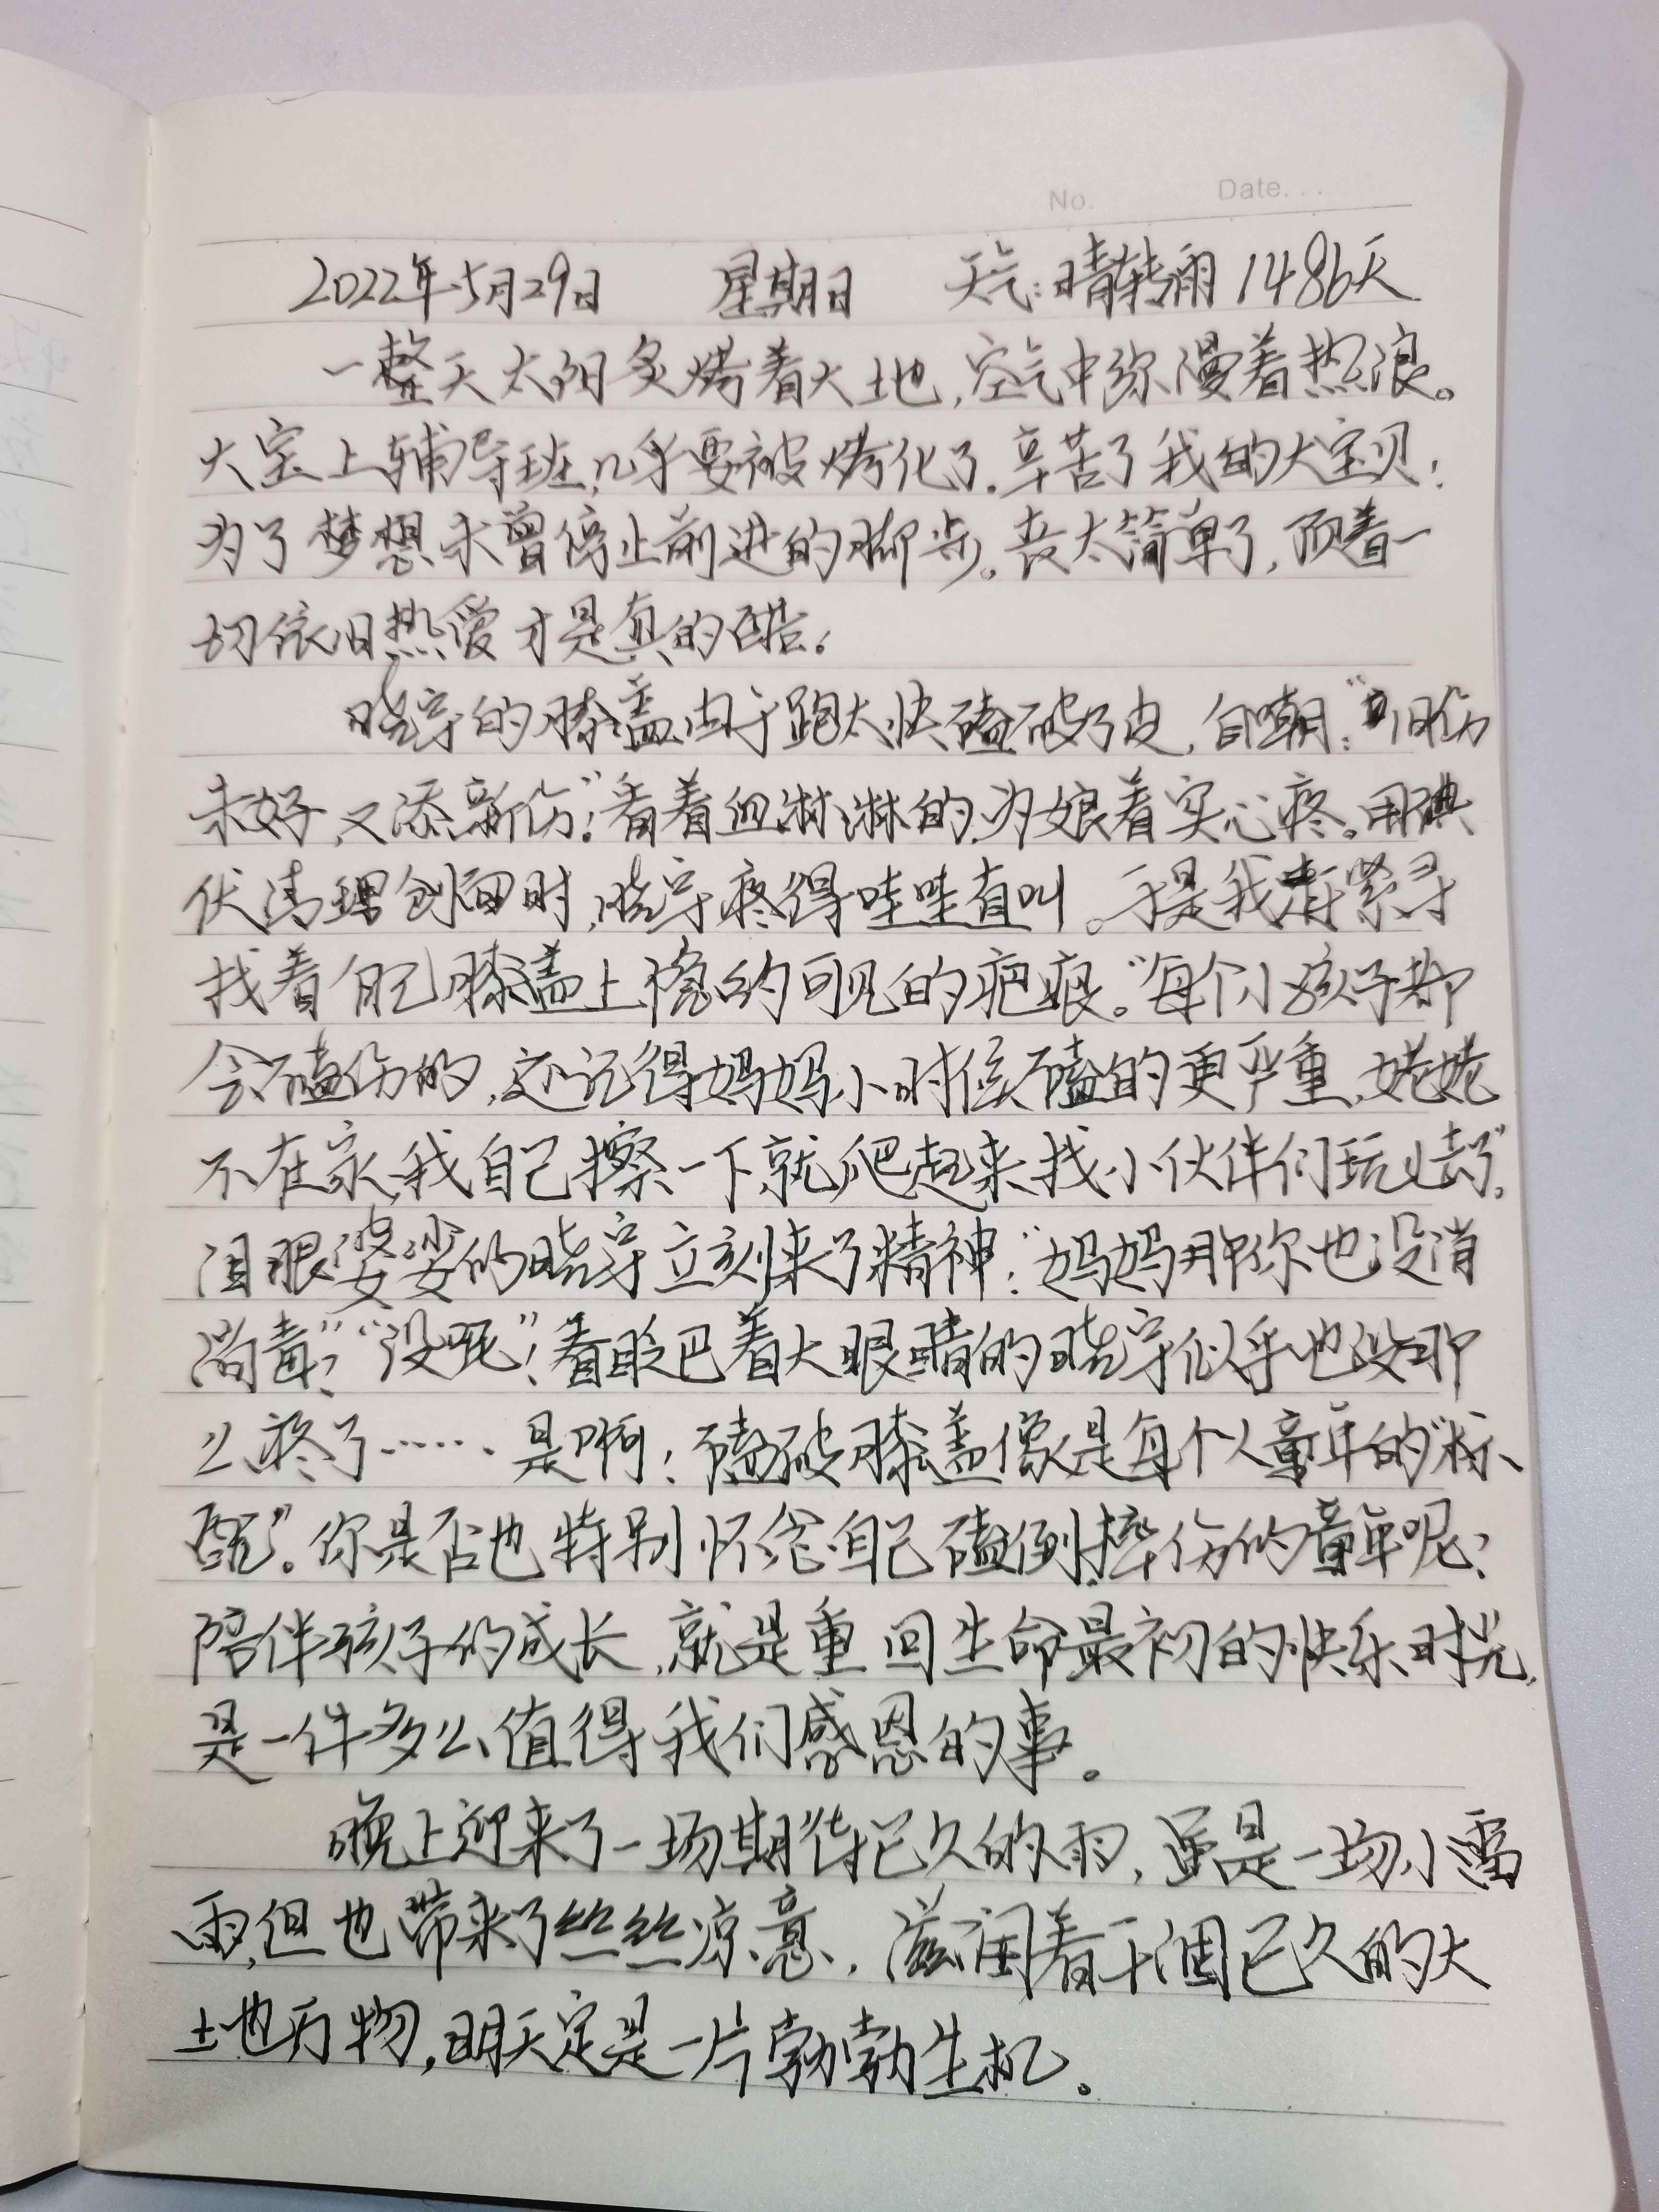 No. Date...
2022年5月29日 星期日 天气:晴转雨 1486天
一整天太阳炙烤着大地,空气中弥漫着热浪。
大宝上辅导班,几乎要被烤化了.辛苦了我的大宝贝!
为了梦想未曾停止前进的脚步。丧太简单了,顶着一
切依旧热爱才是真的酷!
晓宇的膝盖由于跑太快磕破了皮,自嘲:“旧伤
未好,又添新伤”!看着血淋淋的,为娘着实心疼。用碘
伏清理创面时,晓宇疼得哇哇直叫。于是我赶紧寻
找着自己膝盖上隐约可见的疤痕。“每个小孩子都
会磕伤的,还记得妈妈小时候磕的更严重,姥姥
不在家,我自己擦一下就爬起来找小伙伴们玩去了”
泪眼婆娑的晓宇立刻来了精神:“妈妈那你也没消
消毒?”“没呢”!看眨巴着大眼睛的晓宇似乎也没那
么疼了……是啊!磕破膝盖像是每个人童年的“标
配”。你是否也特别怀念自己磕倒摔伤的童年呢?
陪伴孩子的成长,就是重回生命最初的快乐时光,
是一件多么值得我们感恩的事。
晚上迎来了一场期待已久的雨,虽是一场小雷
雨,但也带来了丝丝凉意,滋润着干涸已久的大
土地万物,明天定是一片勃勃生机。